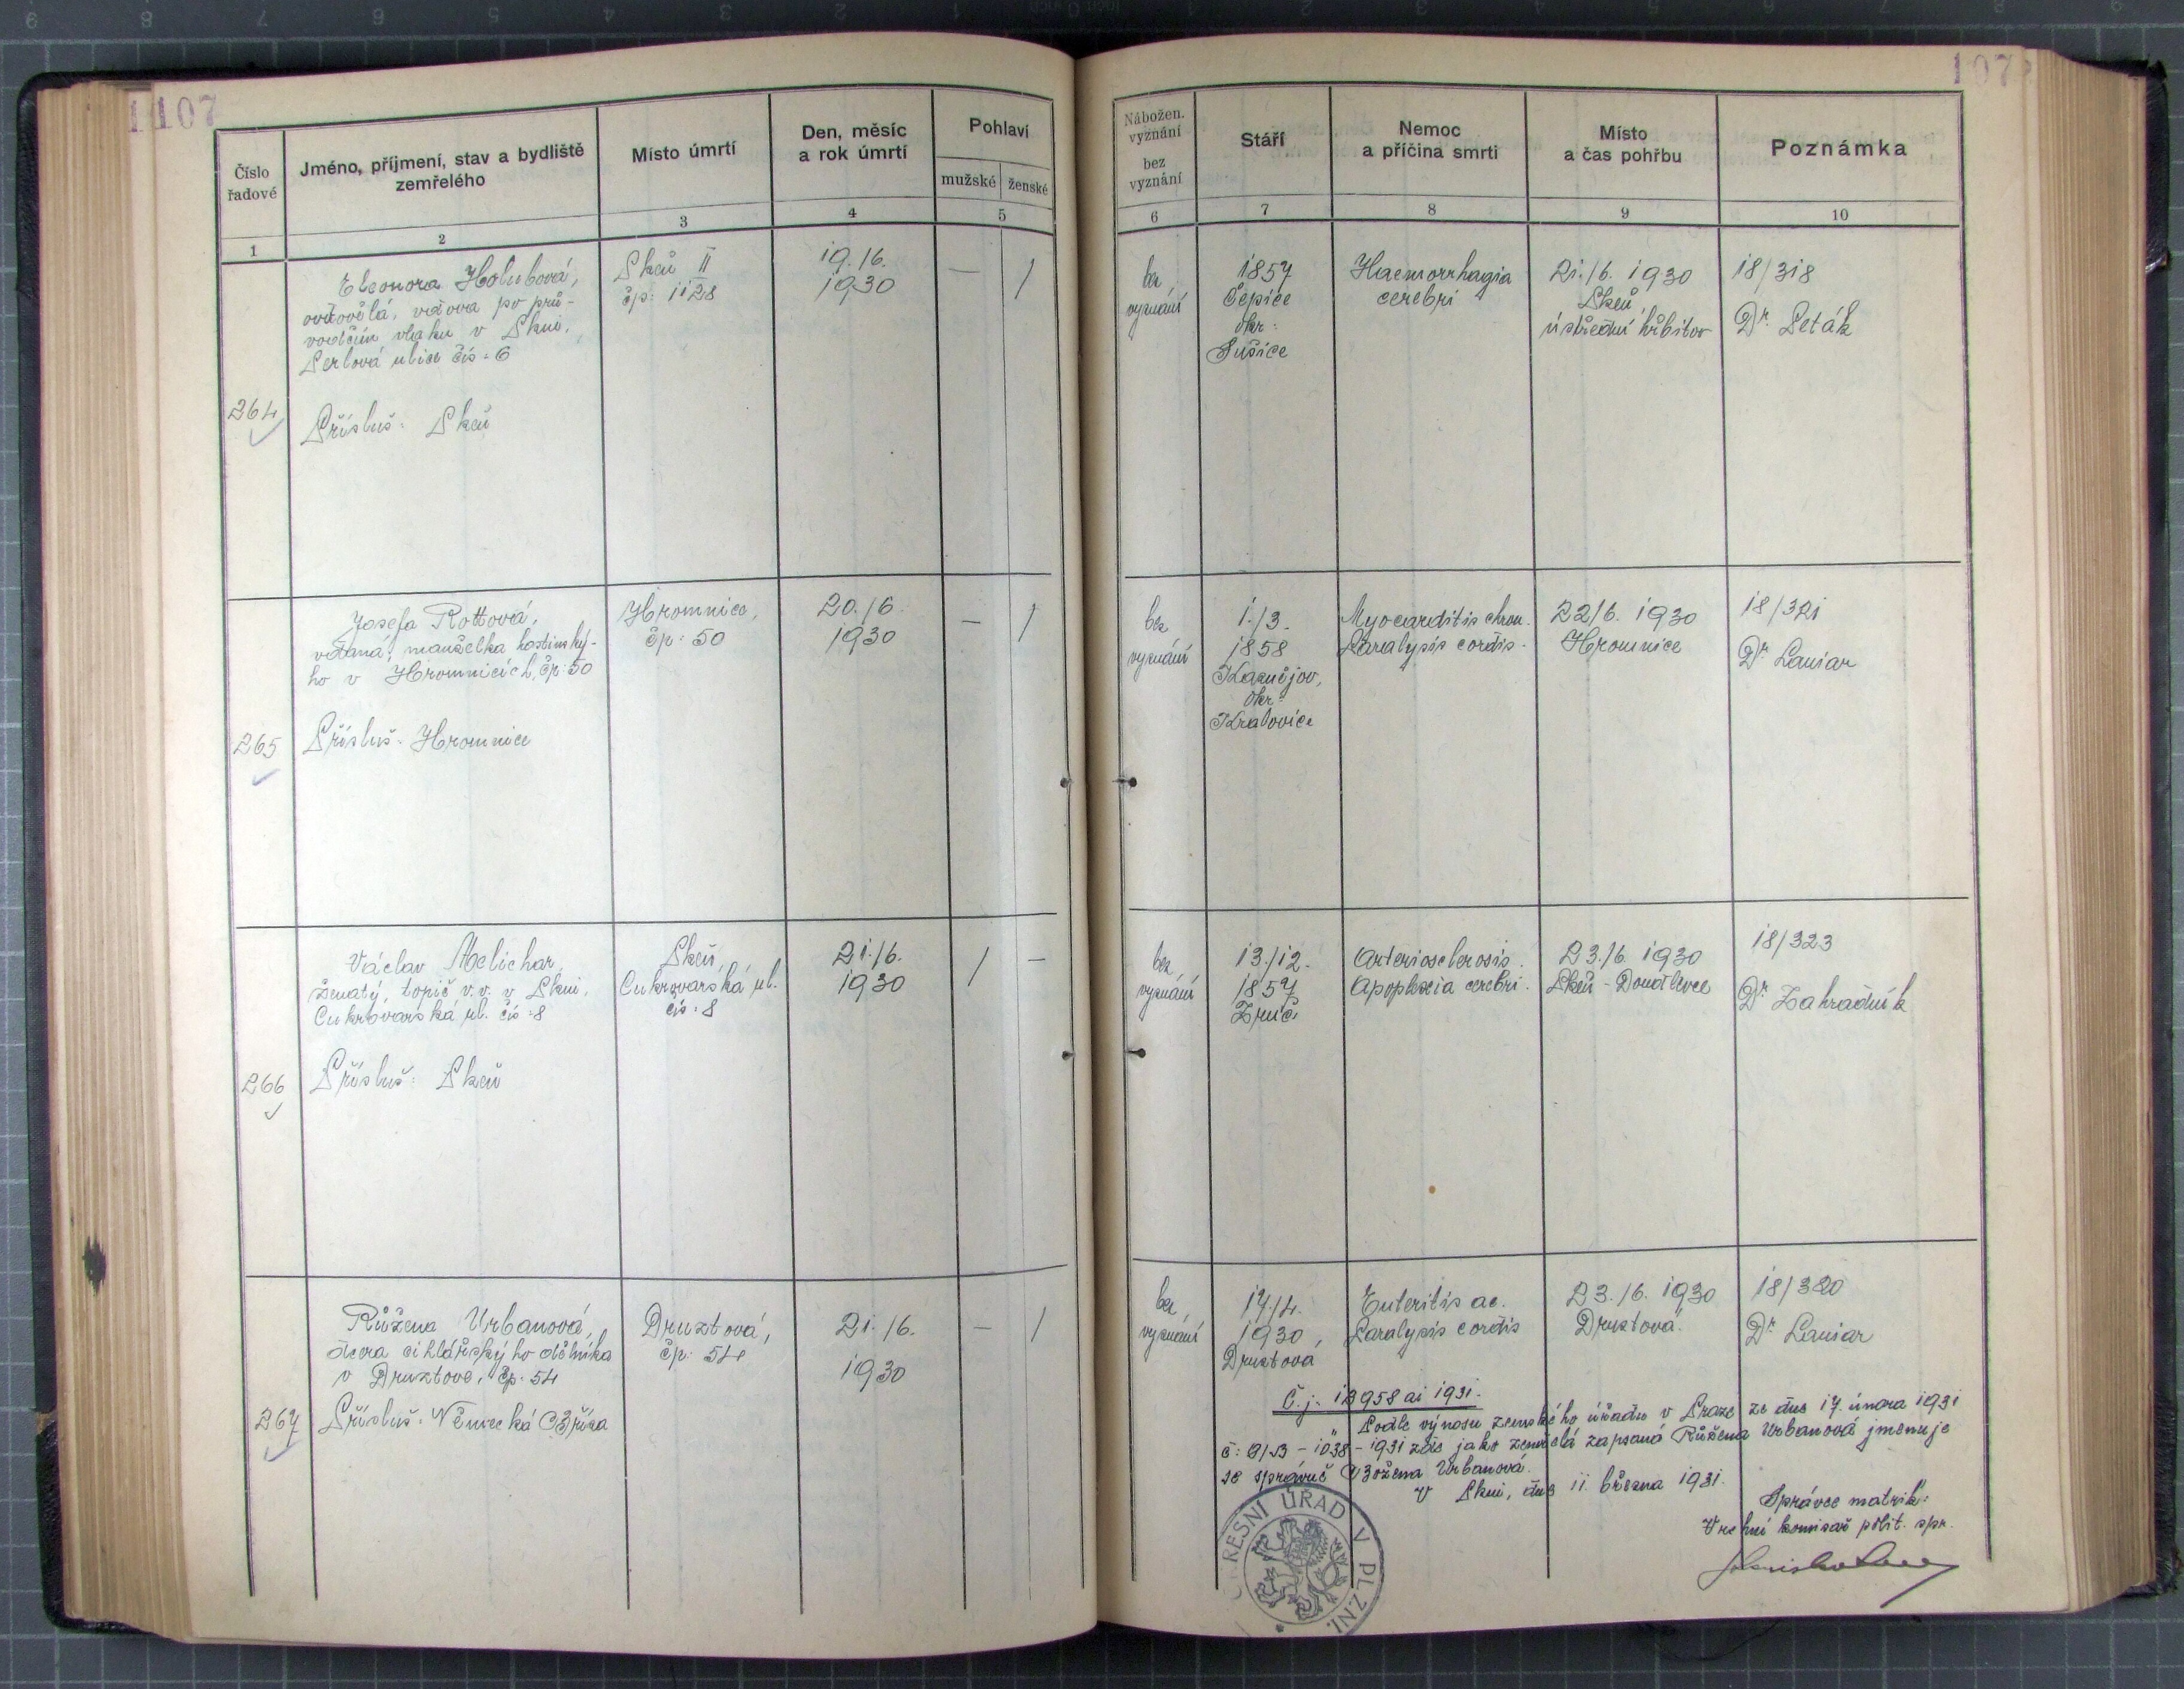 107
107
Číslo řadové
Jméno, příjmení, stav a bydliště zemřelého
Místo úmrtí
Den, měsíc a rok úmrtí
Pohlaví
mužské
ženské
Nábožen. vyznání
bez vyznání
Stáří
Nemoc a příčina smrti
Místo a čas pohřbu
Poznámka
1
2
3
4
5
6
7
8
9
10
264
Eleonora Holubová,
ovdovělá, vdova po prů-
vodčím vlaku v Plzni,
Perlová ulice čís. 6
Přísluš: Plzeň
Plzeň II
čp: 1128
19./6.
1930
—
1
bez
vyznání
1857
Čepice
okr:
Sušice
Haemorrhagia
cerebri
21./6. 1930
Plzeň,
ústřední hřbitov
18/318
Dr. Peták
265
Josefa Rottová,
vdaná, manželka hostinský-
ho v Hromnicích, čp. 50
Přísluš: Hromnice
Hromnice,
čp: 50
20./6.
1930
—
1
bez
vyznání
1./3.
1858
Kaznějov,
okr:
Kralovice
Myocarditis chron.
Paralysis cordis.
22/6. 1930
Hromnice
18/321
Dr. Laniar
266
Václav Melichar,
ženatý, topič v.v. v Plzni,
Cukrovarská ul. čís. 8
Přísluš: Plzeň
Plzeň,
Cukrovarská ul.
čís. 8
21./6.
1930
1
—
bez
vyznání
13./12.
1857
Zruč.
Arteriosclerosis.
Apoplexia cerebri.
23./6. 1930
Plzeň - Doudlevce
18/323
Dr. Zahradník
267
Růžena Urbanová,
dcera cihlářskýho dělníka
v Druztové, čp. 54
Přísluš: Německá Říša
Druztová,
čp: 54
21./6.
1930
—
1
bez
vyznání
17./4.
1930,
Druztová
Enteritis ac.
Paralysis cordis
23./6. 1930
Druztová.
18/320
Dr. Laniar
Č.j. 12958 ai 1931.
Podle výnosu zemského úřadu v Praze ze dne 17. února 1931
- 1931 zde jako zemřelá zapsaná Růžena Urbanová jmenuje
se správně Božena Urbanová.
V Plzni, dne 11. března 1931.
Správce matrik:
Vrchní komisař polit. spr.
OKRESNÍ ÚŘAD V PLZNI.